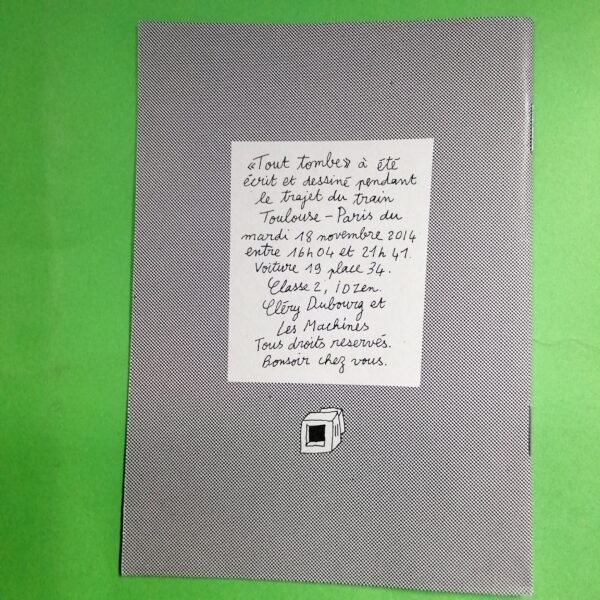 «Tout tombe» à été
écrit et dessiné pendant
le trajet du train
Toulouse - Paris du
mardi 18 novembre 2014
entre 16h04 et 21h41.
Voiture 19 place 34.
Classe 2, iDzen.
Cléry Dubourg et
Les Machines
Tous droits reservés.
Bonsoir chez vous.